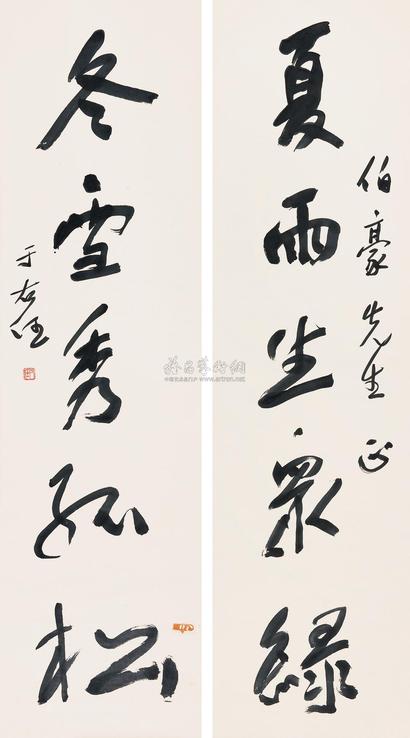 伯豪先生正
夏雨生眾綠
冬雪秀孤松
于右任
雅昌艺术网
www.artron.net